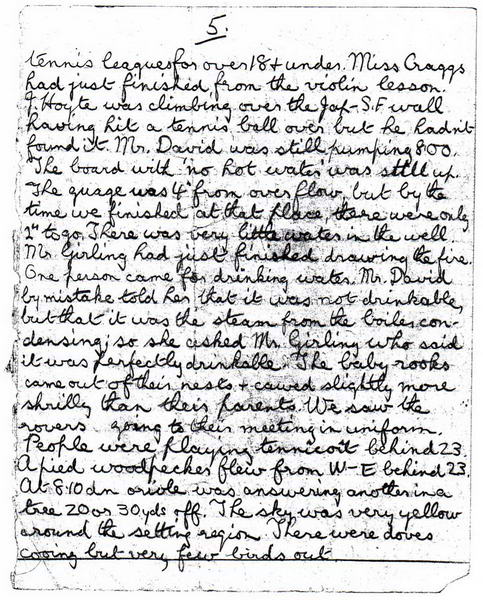 5.
tennis leagues for over 18 + under. Miss Craggs
had just finished from the violin lesson.
J. Hoyte was climbing over the Jap-S.F wall
having hit a tennis ball over but he hadn't
found it. Mr. David was still pumping 8.00.
The board with 'no hot water' was still up.
The guage was 4" from overflow, but by the
time we finished at that place, there were only
2" to go. There was very little water in the well.
Mr. Girling had just finished drawing the fire.
One person came for drinking water. Mr. David
by mistake told her that it was not drinkable,
but that it was the steam from the boiler con-
densing; so she asked Mr. Girling who said
it was perfectly drinkable. The baby rooks
came out of their nests + cawed slightly more
shrilly than their parents. We saw the
rovers going to their meeting in uniform.
People were playing tennicoit behind 23.
A pied woodpecker flew from W-E behind 23.
At 8.10 an oriole was answering another in a
tree 20 or 30 yds off. The sky was very yellow
around the setting region. There were doves
cooing but very few birds out.